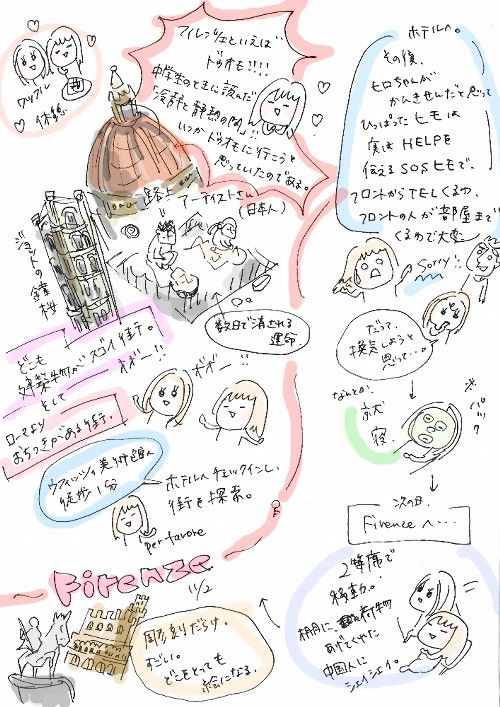 ホテルへ。
その後、
ヒロちゃんが
かんきせんだと思って
ひっぱったヒモは
実はHELPを
伝えるSOSヒモで、
フロントからTELくるわ、
フロントの人が部屋まで
くるわで大変
Sorry!!
だって、
換気しようと
思って…。
なんとか、
就
寝
次の日、
Firenzeへ…
2等席で
移動。
荷物
あげてくれた
中国人に
シェイシェイ。
Firenze
11/2
彫刻だらけ。
すごい。
どこをとっても
絵になる。
ウフィッツィ美術館
徒歩1分
ホテルへチェックインし、
街を探索。
per favore
どこも
建築物がスゴイ街
そして
ローマより
おちつきがある街。
オオー!!
ジョットの鐘楼
路上アーティストさん
(日本人)
数日で消される
運命。
フィレンツェといえば
ドゥオモ!!!!
中学生のときに読んだ
「冷静と情熱の間」!!
いつかドゥオモに行こうと
思っていたのである。
ワッフル
休憩